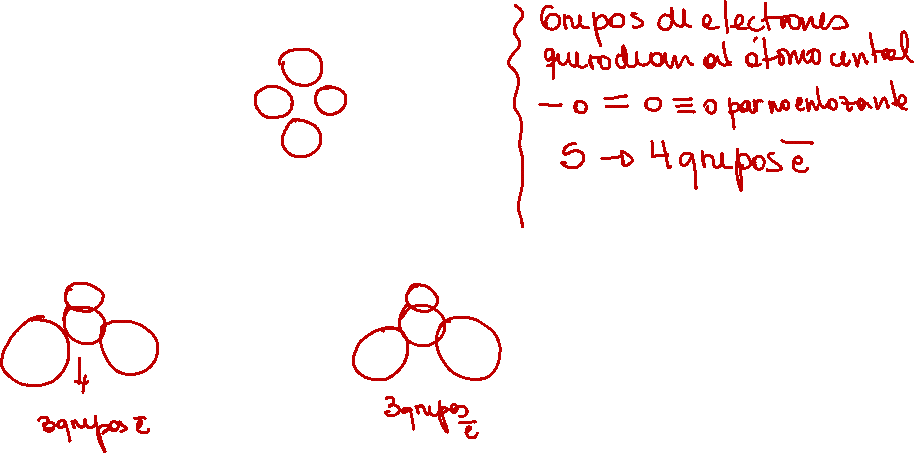 Grupos de electrones
que rodean al átomo central
– o = o ≡ o par no enlazante
S → 4 grupos e̅
3 grupos e̅
3 grupos
e̅